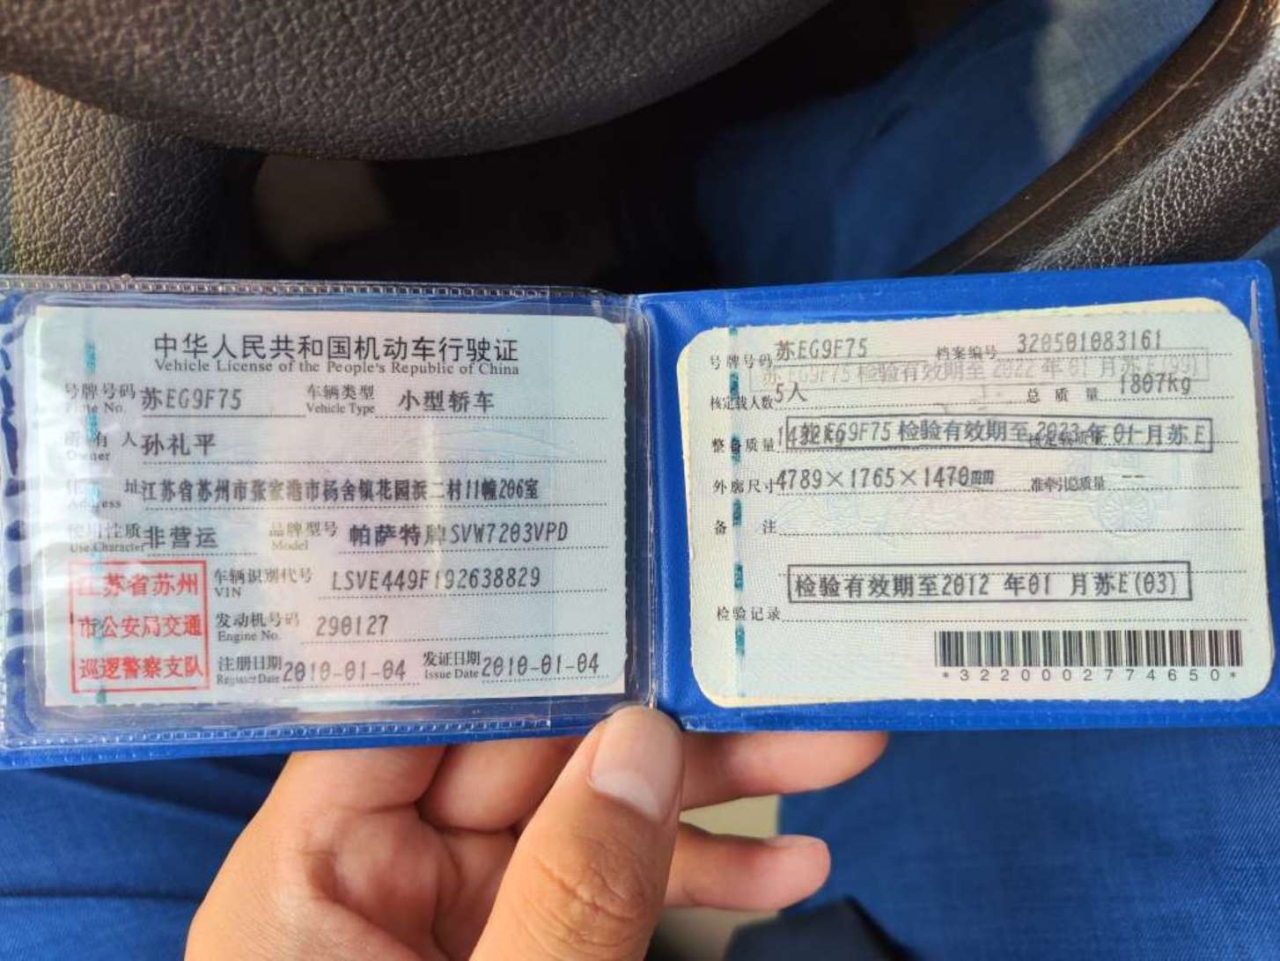 中华人民共和国机动车行驶证
Vehicle License of the People's Republic of China
号牌号码 苏EG9F75 车辆类型 小型轿车
Plate No. Vehicle Type
所有人 孙礼平
Owner
住址 江苏省苏州市张家港市杨舍镇花园浜二村11幢206室
Address
使用性质 非营运 品牌型号 帕萨特牌SVW7203VPD
Use Character Model
江苏省苏州
市公安局交通
巡逻警察支队
车辆识别代号 LSVE449F192638829
VIN
发动机号码 290127
Engine No.
注册日期 2010-01-04 发证日期 2010-01-04
Register Date Issue Date
号牌号码 苏EG9F75 档案编号 320501083161
苏EG9F75 检验有效期至 2022 年 01 月苏E(99)
核定载人数 5人 总质量 1807kg
整备质量
苏EG9F75 检验有效期至 2023 年 01 月苏E
外廓尺寸 4789×1765×1470mm 准牵引总质量 --
备注
检验有效期至2012 年01 月苏E(03)
检验记录
*3220002774650*